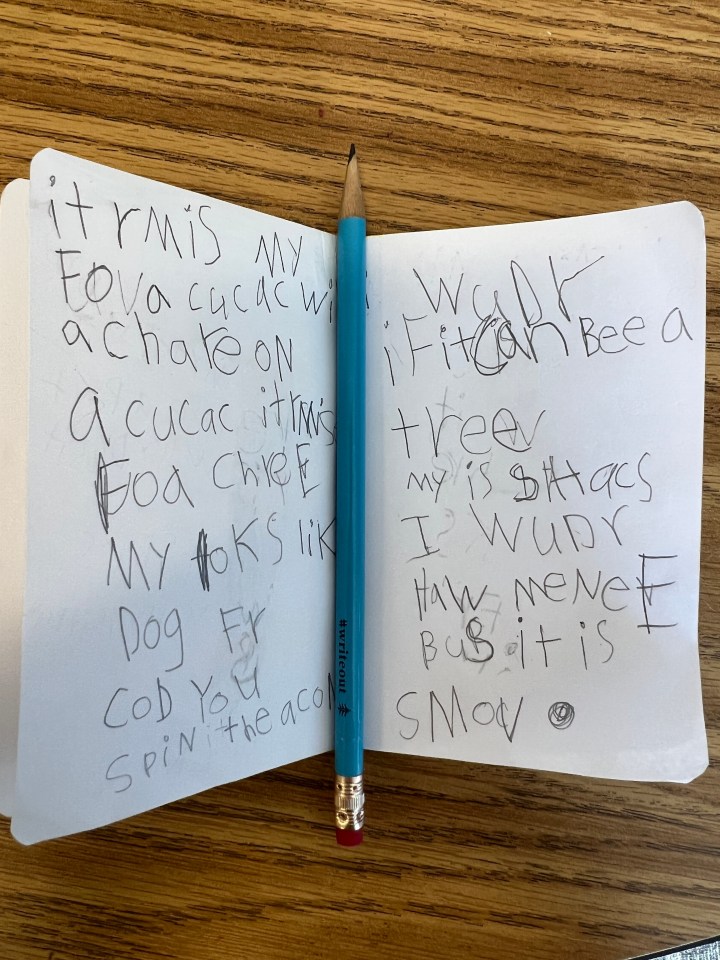 it rMiS MY
FOva cucac wi
a chare ON
a cucac itrmis
Foa chreE
MY loKS lik
Dog Fr
COD YOU
SPiN the acoN
#writeout
WuDr
iFit Can Bee a
tree
my is sttacs
I WUDr
HaW meNeE
BuS it is
SMOV